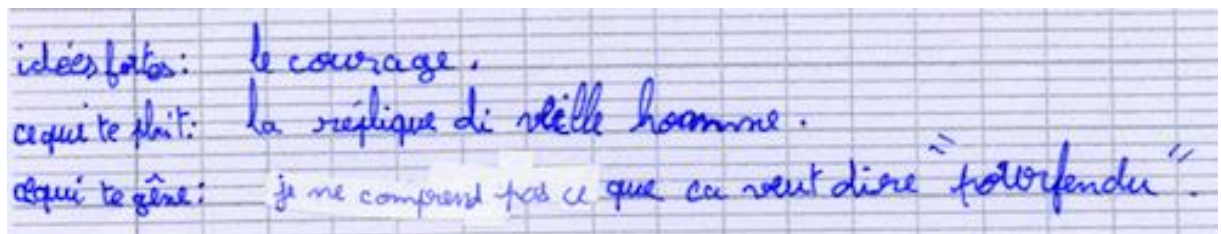 idées fortes: le courage.
ce qui te plait: la réplique di vieille homme.
ce qui te gêne: je ne comprend pas ce que ca veut dire "pourfendu".